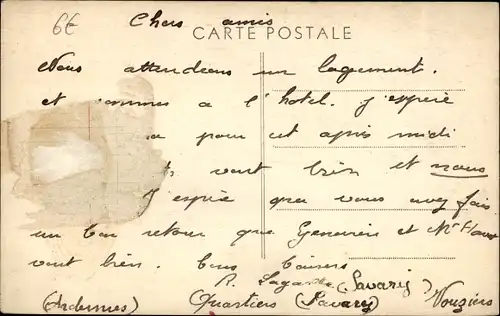 6€
Chers amis
CARTE POSTALE
Nous attendons un logement.
et sommes a l'hotel. J'espère
a pour cet après midi
vont bien et nous
J'espère que vous avez fais
un bon retour que Geneviève et Mr
vont bien. Bons baisers
R. Lagarde (Savary)
(Ardennes) Quartiers (Savary) Vouziers